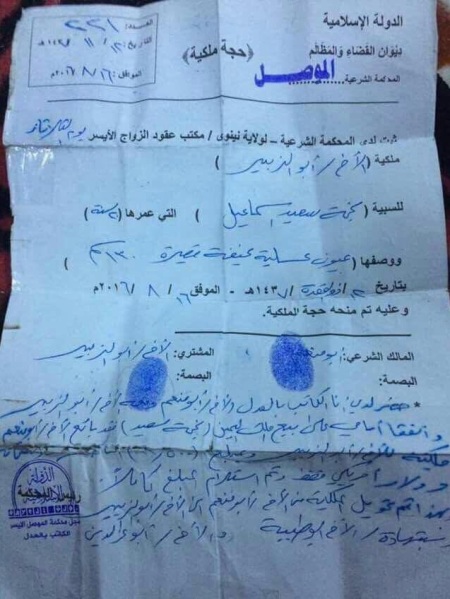 الدولة الإسلامية
ديوان القضاء والمظالم
المحكمة الشرعية
الموصل
﴿حجة ملكية﴾
العدد: ٢٢١
التاريخ: ١١ / ١٤٣
الموافق: ١٦ / ٨ / ٢٠١٦م
ثبت لدى المحكمة الشرعية – لولاية نينوى / مكتب عقود الزواج الأيسر يوم الثلاثاء
ملكية (الأخ / أبو الزبير)
للسبية ( سعيد اسماعيل ) التي عمرها ( سنة)
ووصفها ( عيون عسلية نحيفة قصيرة ١٣٠ سم )
بتاريخ ذو القعدة / ١٤٣٧هـ - الموافق ١٦ / ٨ / ٢٠١٦م
وعليه تم منحه حجة الملكية.
المالك الشرعي: أبو منعم المشتري: الأخ / أبو الزبير
البصمة: البصمة:
* حضر لدي أنا الكاتب بالعدل الأخ / أبو منعم أخ / أبو الزبير
واتفقا أمامي على بيع ملك اليمين ( سعيد) فقد باع الأخ / أبو منعم
للأخ / أبو الزبير
دولار أمريكي فقط وتم استلام المبلغ كاملا
بهذا تم تحويل الملكية من الأخ / أبو منعم الى الأخ / أبو الزبير
بشهادة / الأخ والأخ /
الدولة
رئيس المحكمة
ديوان محكمة الموصل الأيسر
الكاتب بالعدل